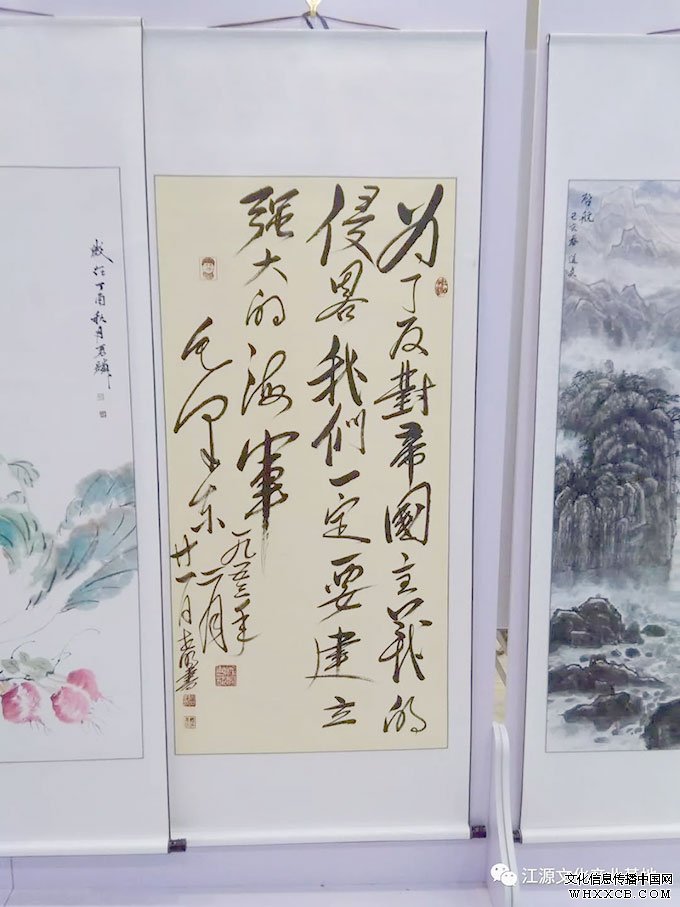 为了反對帝國主義的
侵畧我們一定要建立
强大的海軍
毛泽东
一九五三年
二月
廿一日
啓航
丁酉秋月
江源文化
文化信息传播中国网
WHXXCB.COM